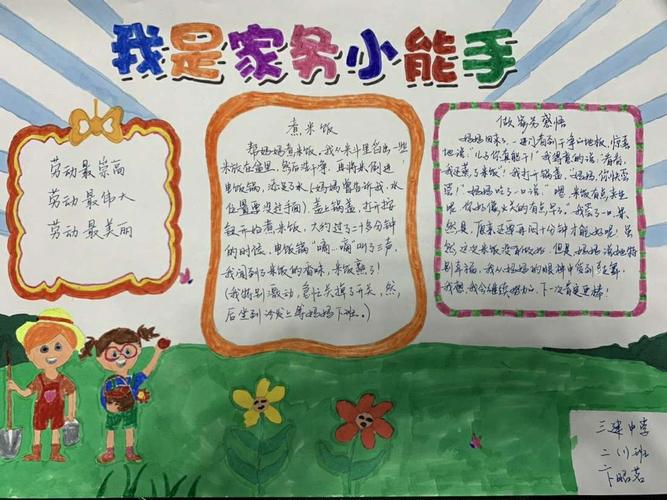 我是家务小能手
劳动最崇高
劳动最伟大
劳动最美丽
煮米饭
帮妈妈煮米饭,我从米斗里舀出一些
米放在篮里,然后洗干净,再将米倒进
电饭锅,添足了水(妈妈警告诉我,水
位置要没过手面),盖上锅盖,打开按
钮开始煮米饭,大约过了二十多分钟
的时候,电饭锅“嘀…嘀”叫了三声,
我闻到了米饭的香味,米饭熟了!
(我特别激动,急忙关掉了开关,然
后坐到沙发上等妈妈下班。)
做家务感悟
妈妈回来了,一进门看到干净的地板,惊喜
地说:“儿子你真能干!”我得意的说:“看看,
我还煮了米饭!”我打开锅盖,“妈妈,你快尝
尝!”妈妈吃了一口说:“嗯,米饭有点夹生
哦,你好像火关的有点早。”我尝了一口,果
然是,原来还要再闷十分钟才能好呢!虽
然这次米饭没有做好,但是,妈妈说她特
别幸福,我从妈妈的眼神中感到鼓舞,
我想,我会继续努力,下一次肯定更棒!
三建中学
二(1)班
卞昭茗